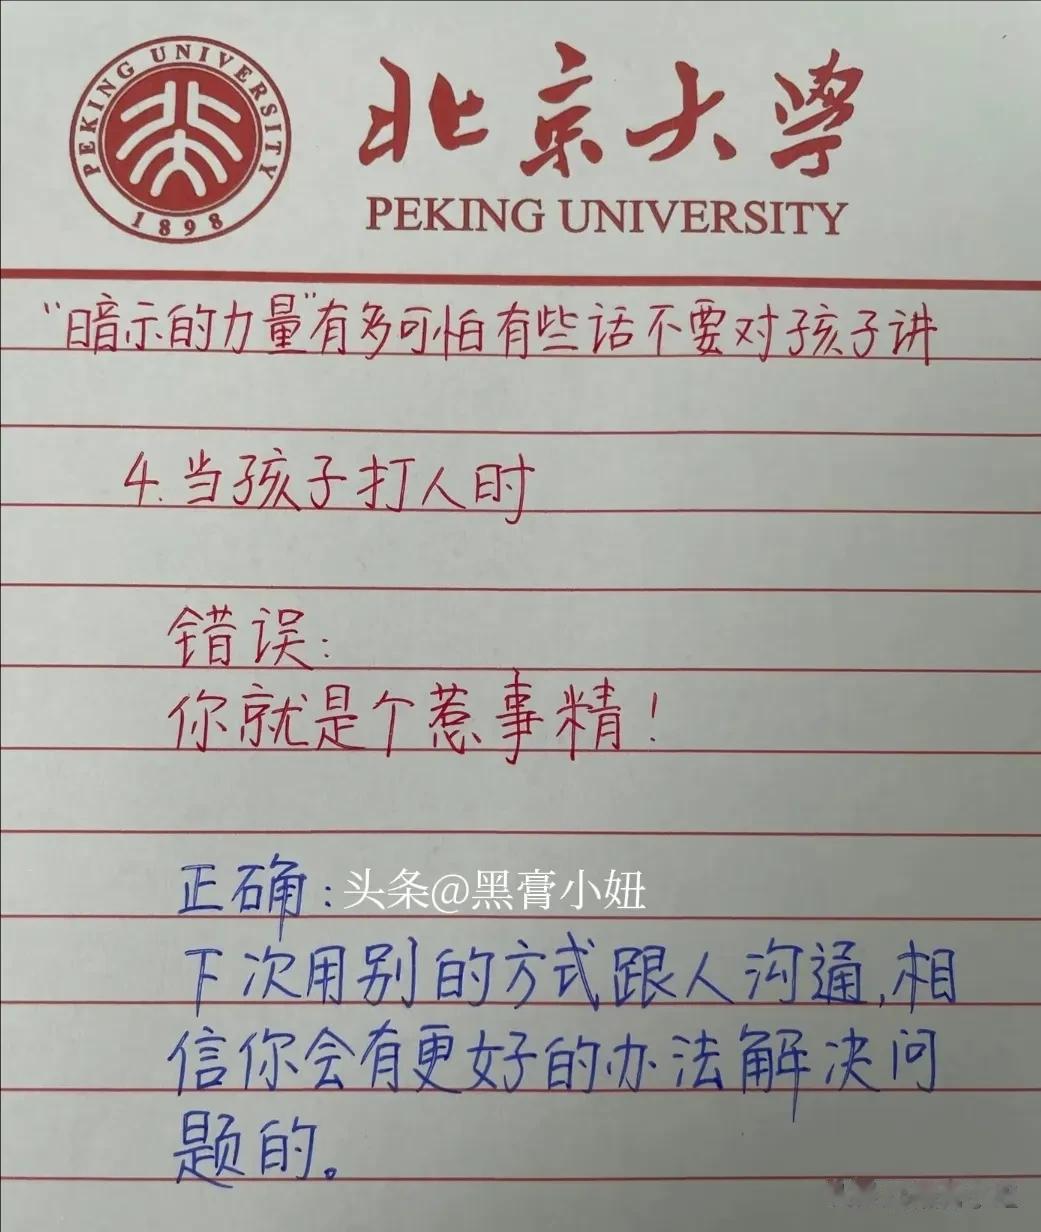 PEKING UNIVERSITY
1898
北京大學
PEKING UNIVERSITY
“暗示的力量”有多可怕有些话不要对孩子讲
4.当孩子打人时
错误:
你就是个惹事精!
正确:
头条@黑膏小妞
下次用别的方式跟人沟通,相
信你会有更好的办法解决问
题的。